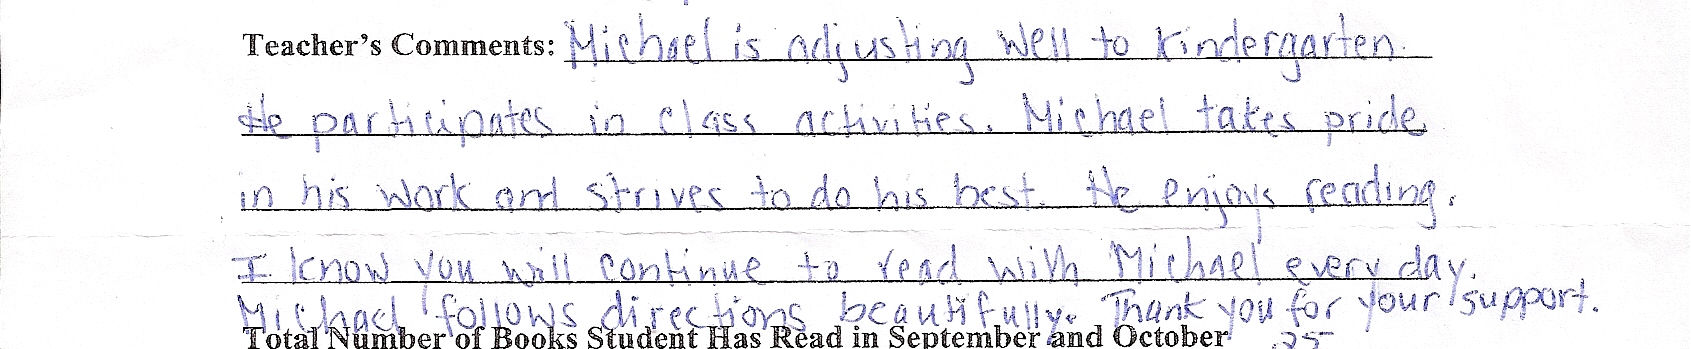 Teacher's Comments: Michael is adjusting well to Kindergarten.
He participates in class activities. Michael takes pride
in his work and strives to do his best. He enjoys reading.
I know you will continue to read with Michael every day.
Michael follows directions beautifully. Thank you for your support.
Total Number of Books Student Has Read in September and October 25